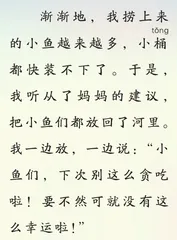 渐渐地，我捞上来
tǒng
的小鱼越来越多，小桶
都快装不下了。于是，
我听从了妈妈的建议，
把小鱼们都放回了河里。
我一边放，一边说：“小
鱼们，下次别这么贪吃
啦！要不然可就没有这
么幸运啦！”